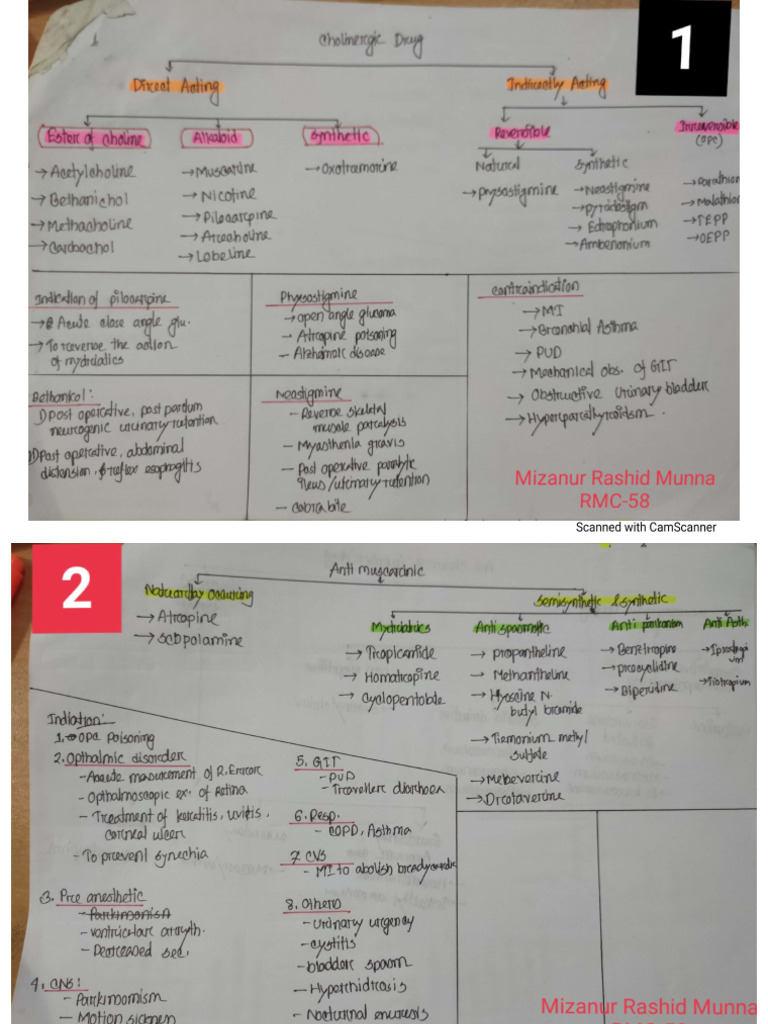 1
1
Cholinergic Drug
Direct Acting
Indirectly Acting
Ester of choline
Alkaloid
Synthetic
Reversible
Irreversible
(OPC)
→ Acetylcholine
→ Bethanichol
→ Methacholine
→ Carbachol
→ Muscarine
→ Nicotine
→ Pilocarpine
→ Arecholine
→ Lobeline
→ Oxotramorine
Natural
→ physostigmine
Synthetic
→ Neostigmine
→ pyridostigm
→ Edrophonium
→ Ambenonium
→ Parathion
→ Malathion
→ TEPP
→ OEPP
Indication of pilocarpine
→ Acute close angle glu.
→ To reverse the action
of mydriatics
Physostigmine
→ open angle glucoma
- Atropine poisoning
- Alzhamair disease
contraindication
→ MI
→ Bronchial Asthma
→ PUD
→ Mechanical obs. of GIT
→ Obstructive urinary bladder
→ Hyperparathyroidism.
Bethankol:
1) post operative, post pardum
neurogenic urinary retention
post operative, abdominal
distension, reflex esophagitis
Neostigmine
- Reverse skeletal
muscle paralysis
- Myasthenia gravis
- Post operative paralytic
ileus/urinary retention
- cobra bite
Mizanur Rashid Munna
RMC-58
Scanned with CamScanner
2
Anti muscarinic
Naturally occuring
→ Atropine
→ scopolamine
Semisynthetic & synthetic
Mydriatics
→ Tropicamide
→ Homatropine
→ Cyclopentolate
Antispasmotic
→ propantheline
→ Methantheline
→ Hyoscine N-
butyl bromide
→ Tiemonium methyl
sulfate
→ Mebevercine
→ Drotaverine
Anti parkinsom
→ Benztropine
→ procyclidine
→ Biperidine
Anti Asth.
→ Ipratropi
→ Tiotropium
Indiation:
1. OPC Poisoning
2. Opthalmic disorder
- Accurate measurement of R. Error
- Opthalmoscopic ex. of Retina
- Treatment of keratitis, uvitis,
corneal ulcer
- To prevent synechia
3. Pre anesthetic
- Parkinmonism
- ventricular arryth.
- Decreased sec.
4. CNS:
- Parkinmomism
- Motion sickness
5. GIT
- PUD
- Travellers diarrhoea
6. Resp.
- COPD, Asthma
7. CVS
- MI to abolish bradycardia
8. Others
- Urinary urgency
- cystitis
- bladder spasm
- Hyperhidrosis
- Nocturnal enuresis
Mizanur Rashid Munna